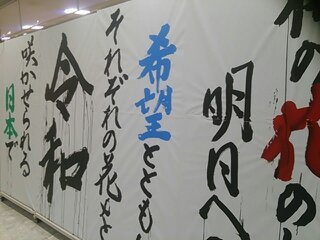 の花の
明日へ
希望とともに
それぞれの花を
令和
咲かせられる
日本で